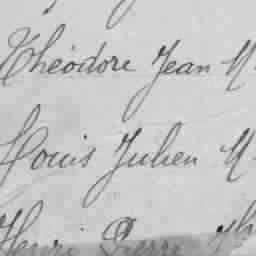 Théodore Jean
Louis Julien
Henri Pierre